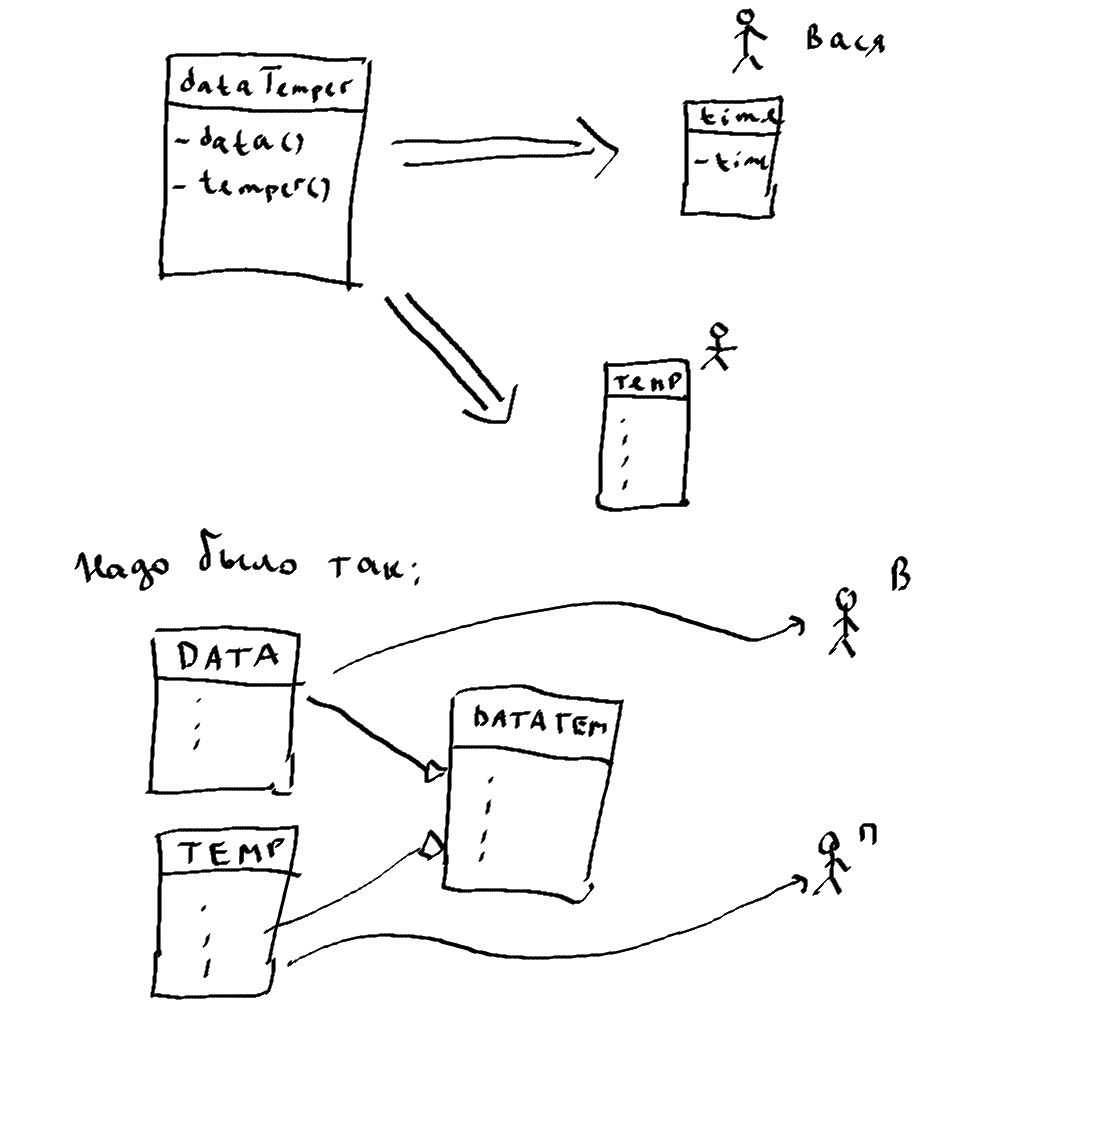 Вася
dataTemper
- data()
- temper()
time
- time
Temp
Надо было так:
В
DATA
DATATEM
TEMP
П